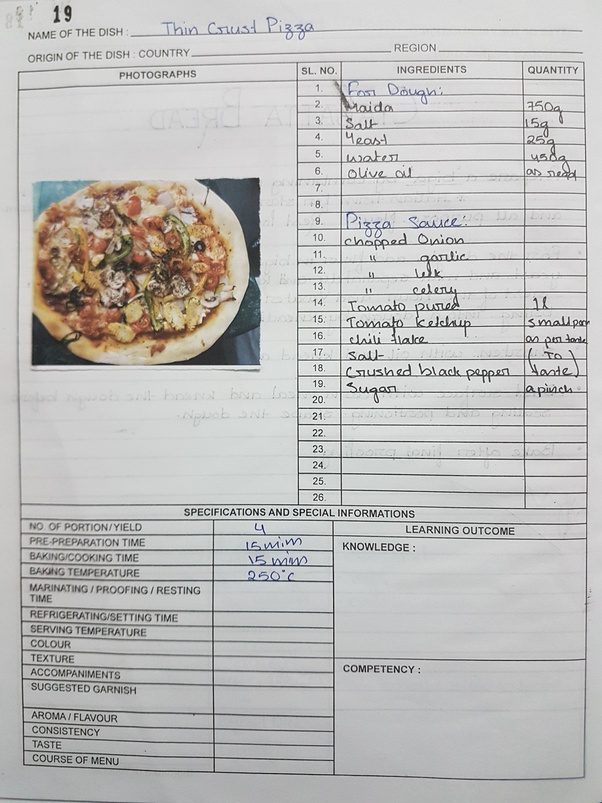 19
NAME OF THE DISH : Thin Crust Pizza
ORIGIN OF THE DISH : COUNTRY REGION
PHOTOGRAPHS SL. NO. INGREDIENTS QUANTITY
1. For Dough:
2. Maida 750g
3. Salt 15g
4. Yeast 25g
5. water 450g
6. Olive oil as read
7.
8.
9. Pizza Sauce:
10. chopped Onion
11. " garlic
12. " leek
13. " celery
14. Tomato pureé 1l
15. Tomato ketchup small
16. chili flake as per taste
17. Salt (To
18. Crushed black pepper taste)
19. Sugar a pinch
20.
21.
22.
23.
24.
25.
26.
SPECIFICATIONS AND SPECIAL INFORMATIONS
NO. OF PORTION/YIELD 4 LEARNING OUTCOME
PRE-PREPARATION TIME 15 min KNOWLEDGE :
BAKING/COOKING TIME 15 min
BAKING TEMPERATURE 250°c
MARINATING / PROOFING / RESTING
TIME
REFRIGERATING/SETTING TIME
SERVING TEMPERATURE
COLOUR
TEXTURE
ACCOMPANIMENTS COMPETENCY :
SUGGESTED GARNISH
AROMA / FLAVOUR
CONSISTENCY
TASTE
COURSE OF MENU